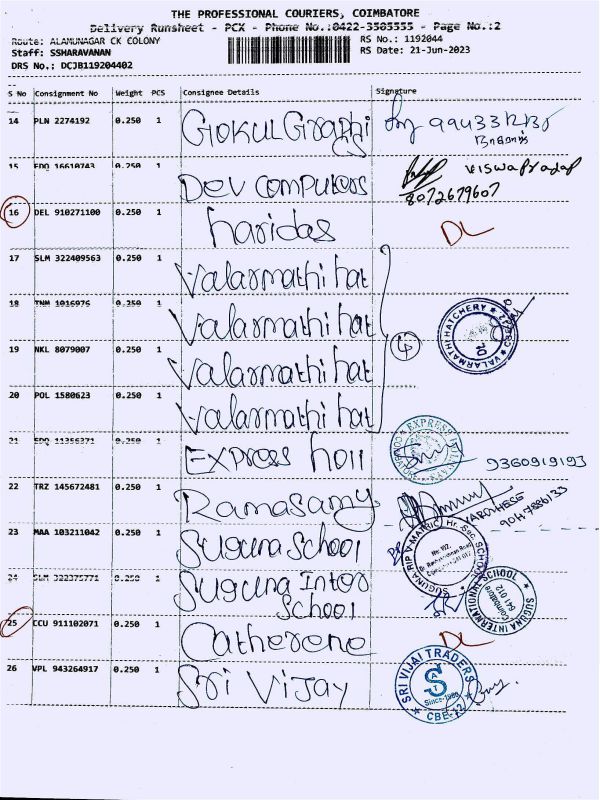 THE PROFESSIONAL COURIERS, COIMBATORE
Delivery Runsheet - PCX - Phone No.:0422-3505555 - Page No.:2
Route: ALAMUNAGAR CK COLONY
RS No.: 1192044
Staff: SSHARAVANAN
RS Date: 21-Jun-2023
DRS No.: DCJB119204402
S No Consignment No Weight PCS Consignee Details Signature
14 PLN 2274192 0.250 1 Gokul
15 EDQ 16610743 0.250 1 Dev Computers
viswapradap
8072679607
16 DEL 910271100 0.250 1 haridas DL
17 SLM 322409563 0.250 1 Valarmathi hat
18 TNM 1016976 0.250 1 Valarmathi hat
4
VALARMATHI HATCHERY
19 NKL 8079007 0.250 1 Valarmathi hat
20 POL 1580623 1 Valarmathi hat
21 EDQ 11356371 0.250 1 Express holl
EXPRESS
9360919193
22 TRZ 145672481 0.250 1 Ramasamy
VARGHESE
23 MAA 103211042 0.250 1 Suguna School
SUGUNA RIP V MATRIC Hr. Sec. SCHOOL
24 SLM 322375771 0.250 1 Suguna Inter
School
SUGUNA INTERNATIONAL SCHOOL
Coimbatore
641 012
25 CCU 911102071 0.250 1 Catherene DL
26 VPL 943264917 0.250 1 Sri Vijay
SRI VIJAI TRADERS
S
CBE-12